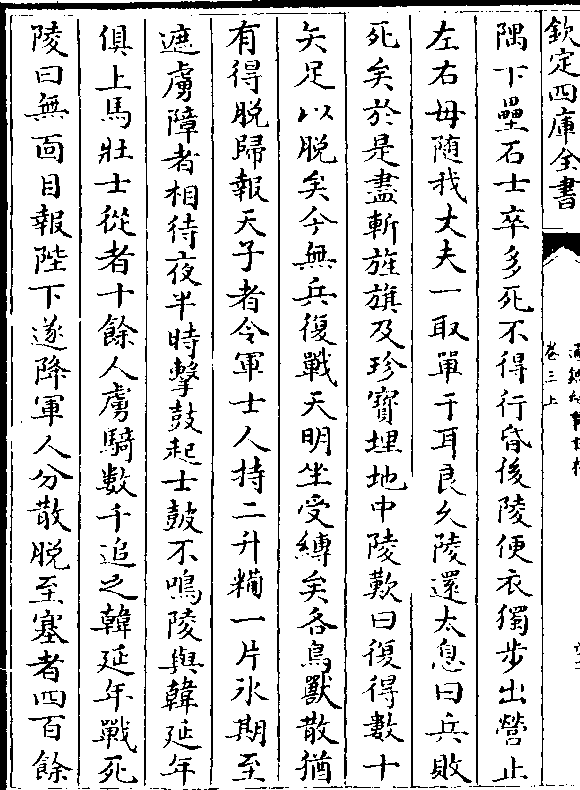 欽定四庫全書
卷三上
隅下壘石士卒多死不得行昏後陵便衣獨步出營止
左右毋随我丈夫一取單于耳良乆陵還太息曰兵敗
死矣於是盡斬旌旗及珍寳埋地中陵歎曰復得數十
矢足以脱矣今無兵復戰天明坐受縛矣各鳥獸散猶
有得脱歸報天子者令軍士人持二升糒一片氷期至
遮虜障者相待夜半時擊鼓起士鼓不鳴陵與韓延年
俱上馬壯士從者十餘人虜騎數千追之韓延年戰死
陵曰無面目報陛下遂降軍人分散脱至塞者四百餘